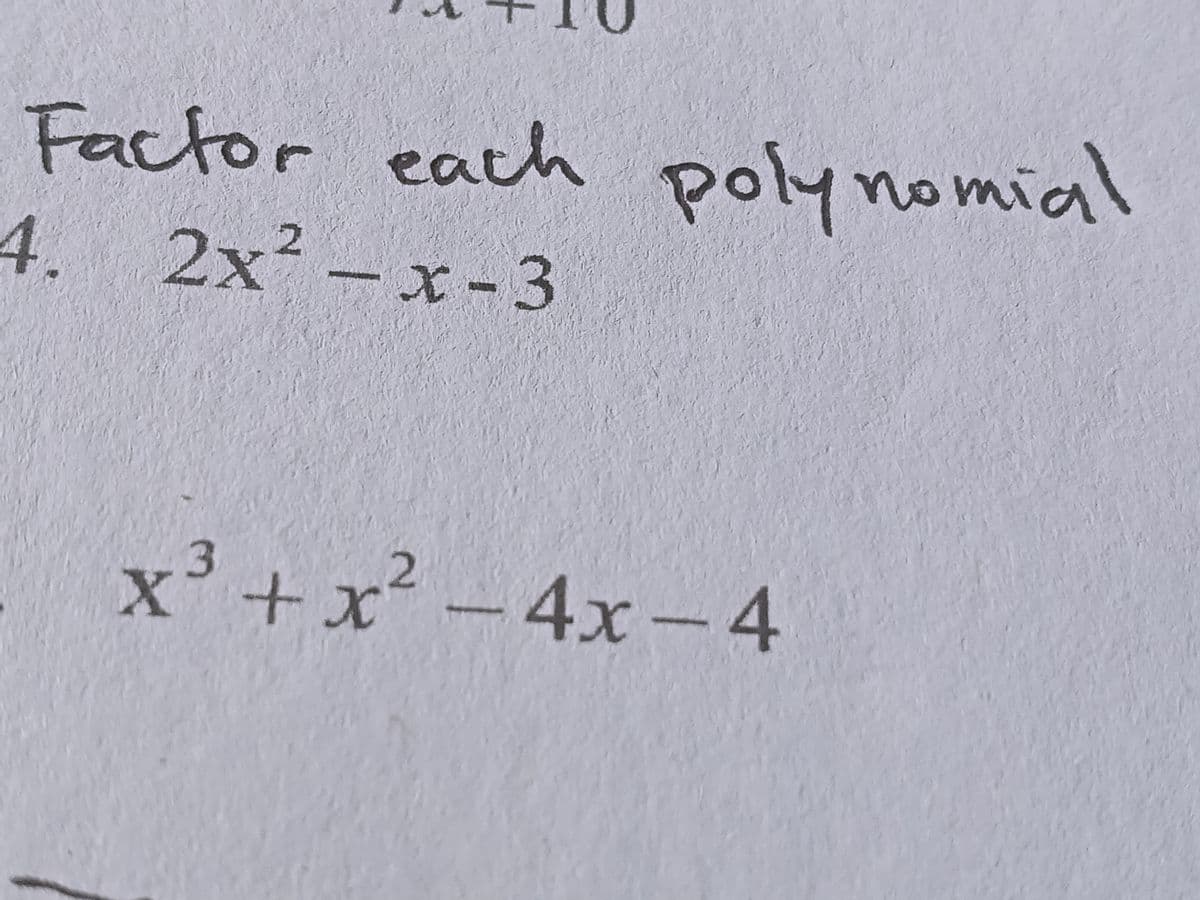 +10
Factor each polynomial
4. 2x² – x-3
x³ + x² – 4x – 4